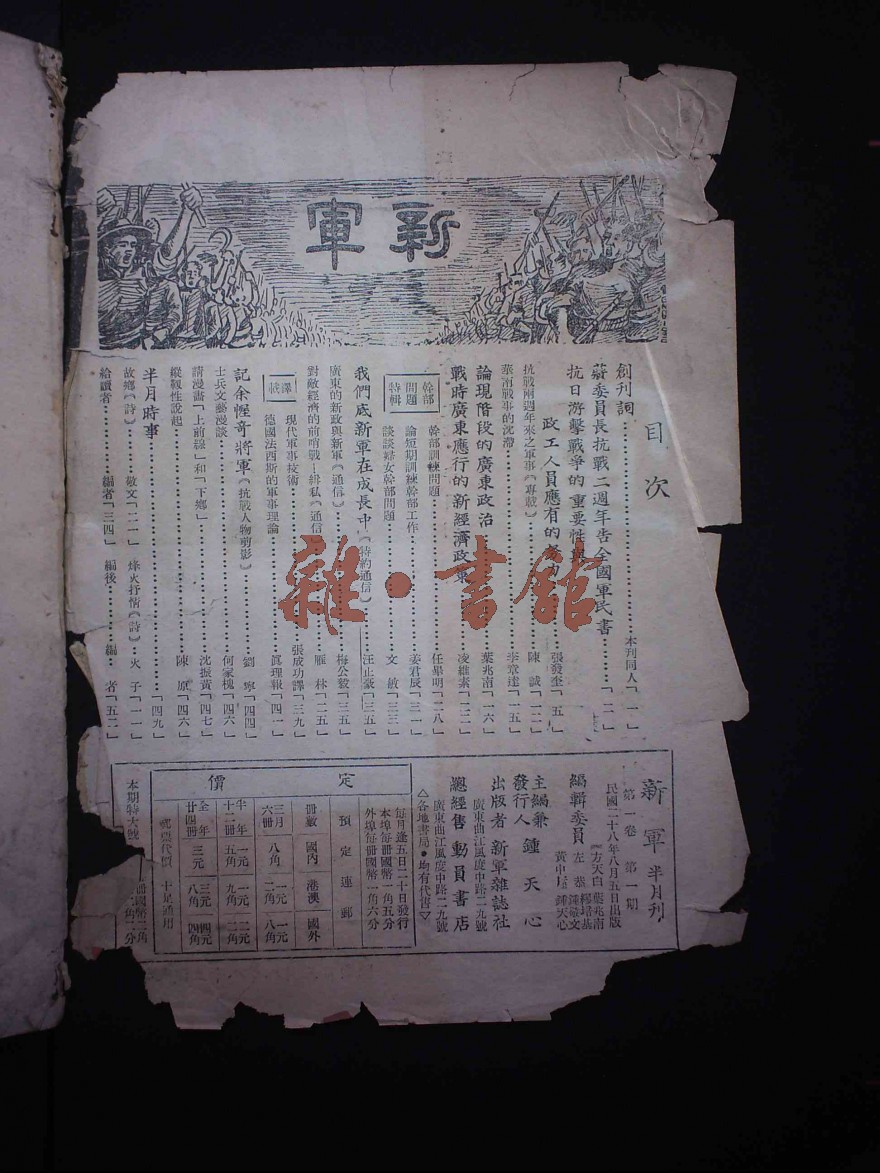 新軍
目次
創刊詞……本刊同人「一」
蔣委員長抗戰二週年告全國軍民書……「二」
抗日游擊戰爭的重要性與
政工人員應有的努力……張發奎「五」
抗戰兩週年來之軍事(專載)……陳誠「一二」
華南戰事的沈滯……李章達「一五」
論現階段的廣東政治……葉兆南「一六」
戰時廣東應行的新經濟政策……凌維素「二二」
幹部問題特輯
幹部訓練問題……任畢明「二八」
論短期訓練幹部工作……姜君辰「三一」
談談婦女幹部問題……文敏「三三」
我們底新軍在成長中(特約通信)……汪止豪「三五」
廣東的新政與新軍(通信)……梅公毅「三五」
對敵經濟的前哨戰—緝私(通信)……雁林「二五」
譯載
現代軍事技術……張成功譯「三九」
德國法西斯的軍事理論……眞理報「四一」
記余幄奇將軍(抗戰人物剪影)……劉寧「四四」
士兵文藝漫談……何家槐「四六」
請漫畫「上前線」和「下鄉」……沈振黃「四七」
縱報性說起……陳原「四六」
半月時事……「四九」
故鄉(詩)……敬文「二一」 烽火抒情(詩)……火子「一一」
給讀者……編者「三四」 編後……編者「五二」
新軍半月刊
第一卷 第一期
民國二十八年八月五日出版
編輯委員
方天白 葉兆南
左恭 繆培基
鍾敬文
黃中廑 鍾天心
主編兼發行人 鍾天心
出版者 新軍雜誌社
廣東曲江風度中路二九號
總經售 動員書店
廣東曲江風度中路二九號
△各地書局·均有代售▽
定價
每月逢五日二十日發行
本埠每冊國幣一角五分
外埠每冊國幣一角六分
預定連郵
冊數 國內 港澳 國外
三月六冊 八角 一元二角 一元八角
半年十二冊 一元五角 二元九角 二元二角
全年廿四冊 三元 三元八角 四元四角
郵票代價 十足通用
本期特大號
冊國幣二角
雜·書館